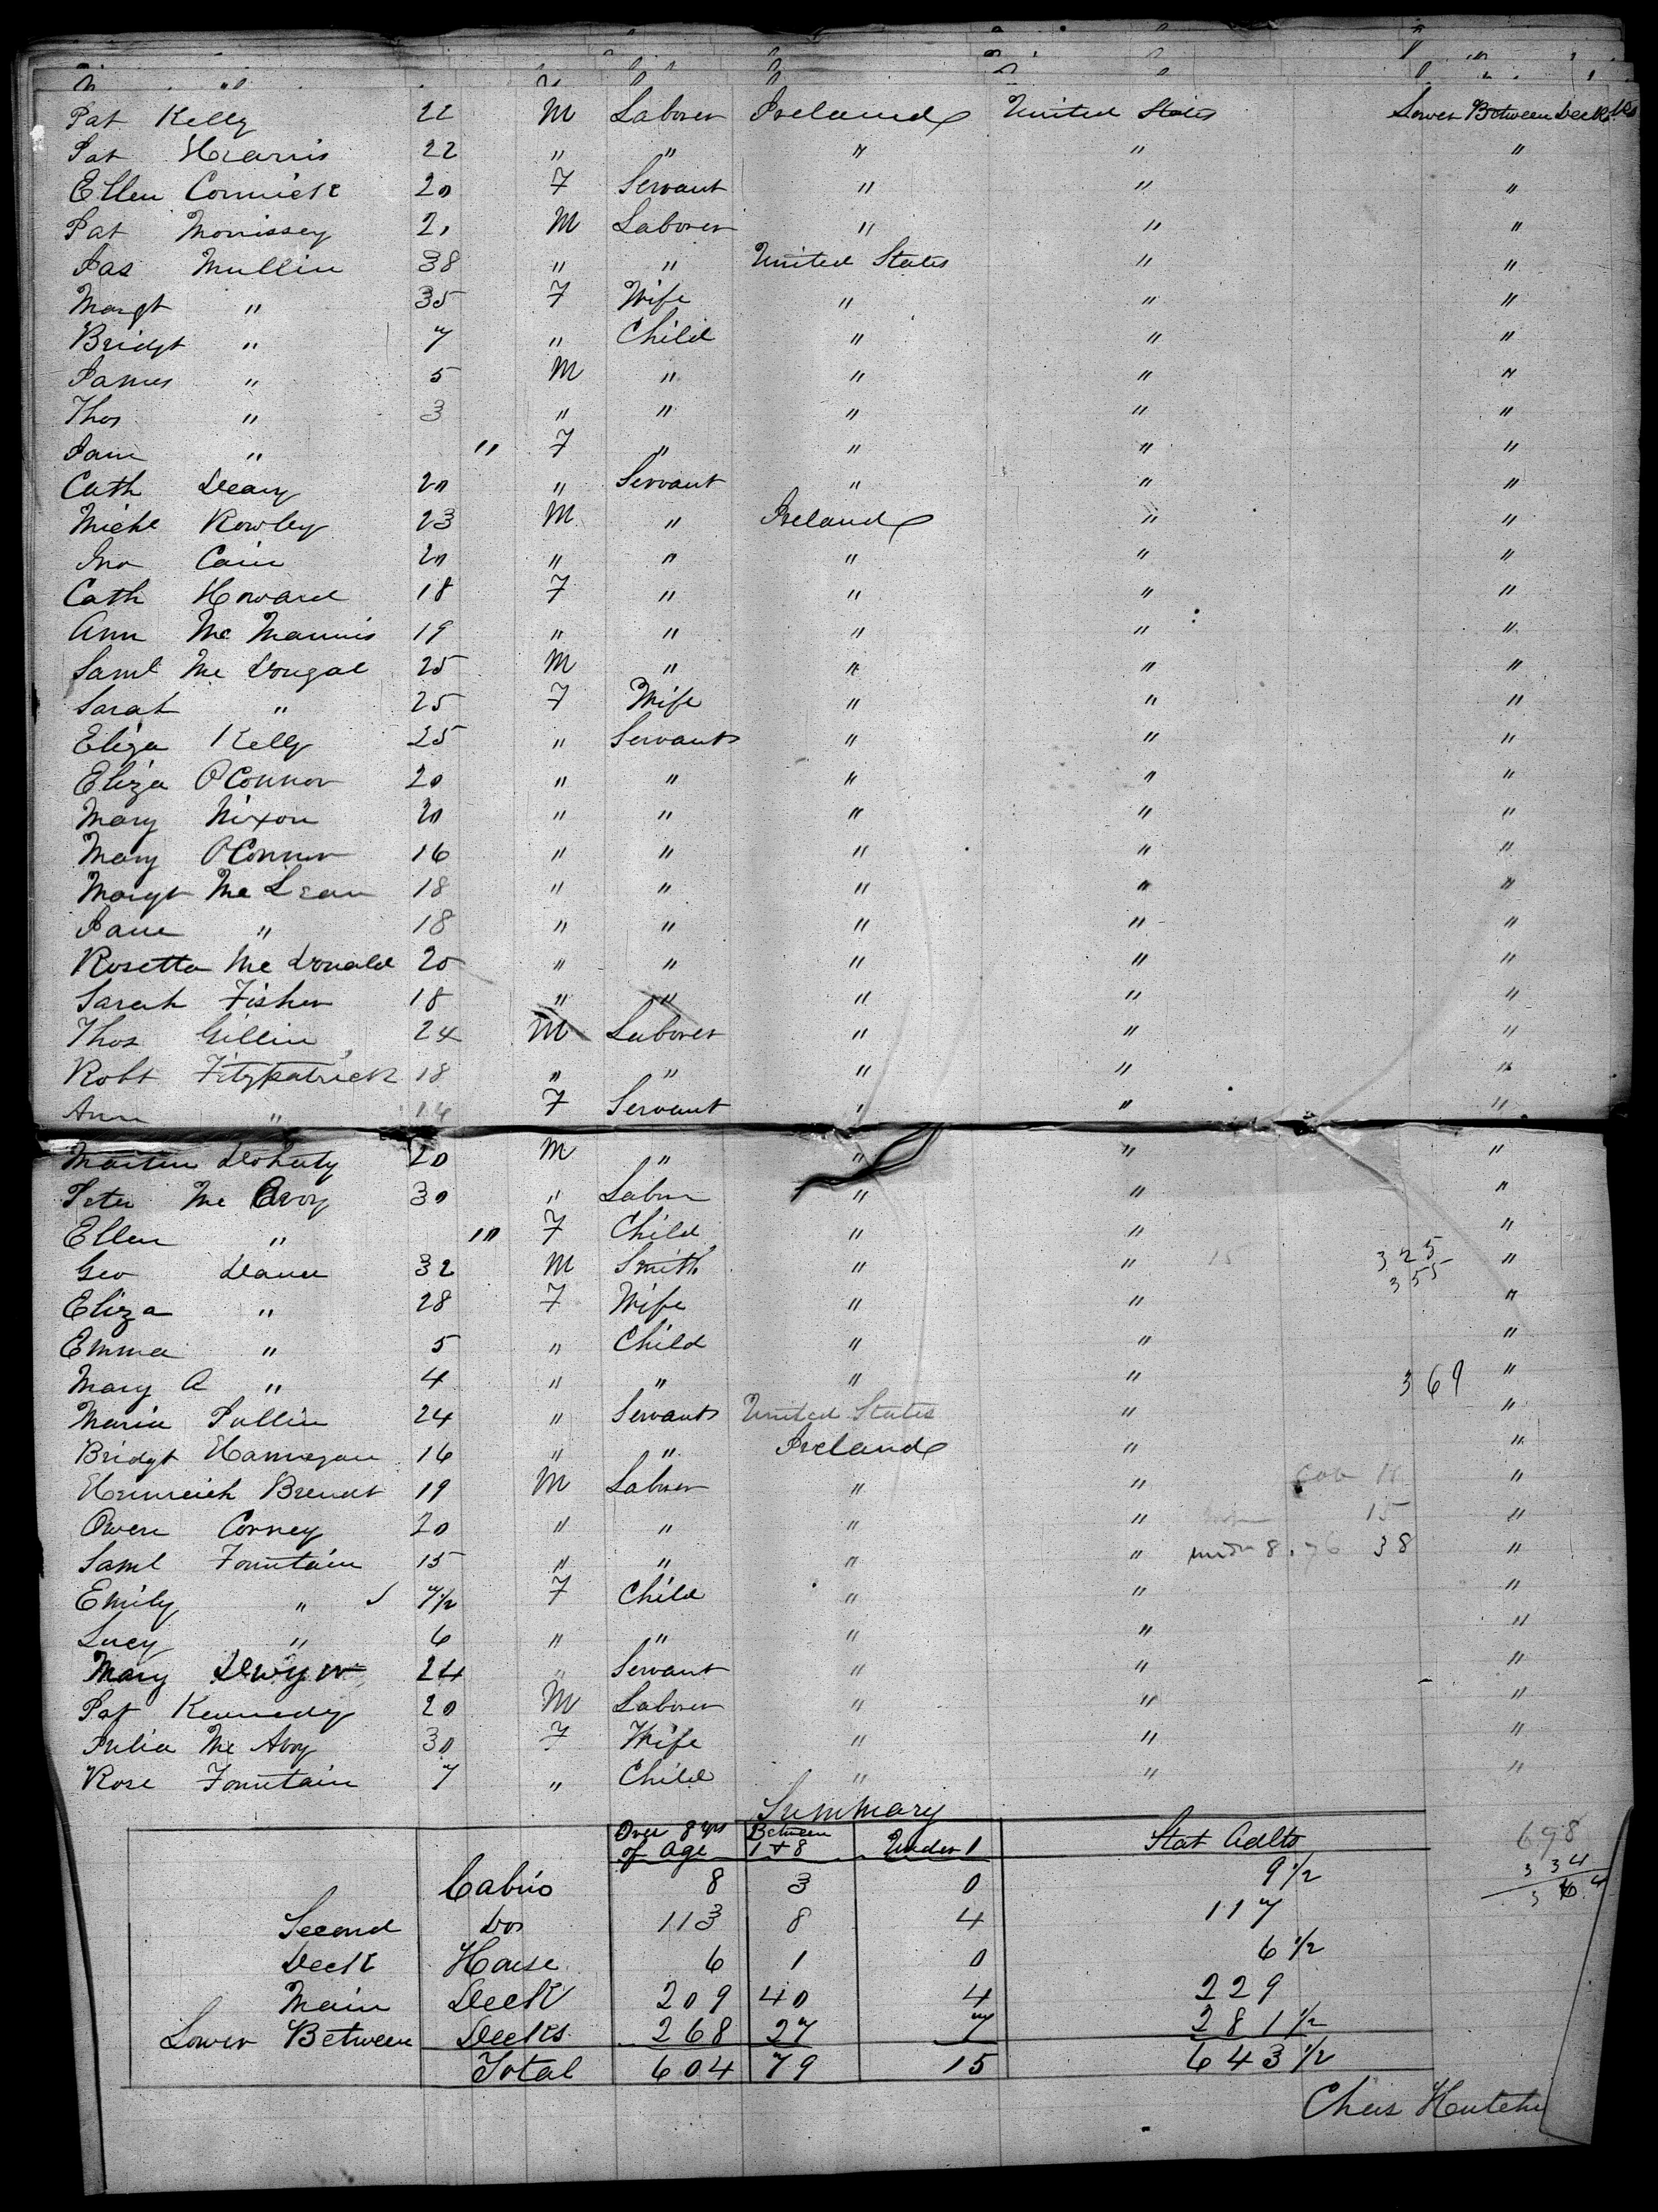 Pat Kelly 22 M Laborer Ireland United States Lower Between Decks
Pat Harris 22 " " " " "
Ellen Cormick 20 F Servant " " "
Pat Morrissey 21 M Laborer " " "
Jas Mullin 38 " " United States " "
Margt " 35 F Wife " " "
Bridgt " 7 " Child " " "
James " 5 M " " " "
Thos " 3 " " " " "
Jane " " F " " " "
Cath Deary 20 " Servant " " "
Michl Rowley 23 M " Ireland " "
Jno Cain 20 " " " " "
Cath Howard 18 F " " " "
Ann Mc Mannis 19 " " " " "
Saml Mc Dougal 25 M " " " "
Sarah " 25 F Wife " " "
Eliza Kelly 25 " Servant " " "
Eliza O'Connor 20 " " " " "
Mary Nixon 20 " " " " "
Mary O'Connor 16 " " " " "
Margt Mc Lean 18 " " " " "
Jane " 18 " " " " "
Rosetta Mc Donald 20 " " " " "
Sarah Fisher 18 " " " " "
Thos Gillin 24 M Laborer " " "
Robt Fitzpatrick 18 " " " " "
Ann " 14 F Servant " " "
Martin Doherty 20 M " " " "
Peter Mc Avoy 30 " Labor " " "
Ellen " 10 F Child " " "
Geo Dance 32 M Smith " " 15 325 "
355
Eliza " 28 F Wife " " "
Emma " 5 " Child " " "
Mary A " 4 " " " " 369 "
Maria Pullin 24 " Servant United States " "
Bridgt Hannegan 16 " " Ireland " "
Heinreich Brendt 19 M Laborer " " "
Owen Corney 20 " " " " 15 "
Saml Fountain 15 " " " " 8.76 38 "
Emily " 7½ F Child " " "
Lucy " 6 " " " " "
Mary Dwyer 24 " Servant " " "
Pat Kennedy 20 M Laborer " " "
Julia Mc Avoy 30 F Wife " " "
Rose Fountain 7 " Child " " "
Summary
Over 8 yrs of Age Between 1 + 8 Under 1 Stat Adlts 698
Cabin 8 3 0 9½ 334
Second Do 113 8 4 117 364
Deck House 6 1 0 6½
Main Deck 209 40 4 229
Lower Between Decks 268 27 7 281½
Total 604 79 15 643½
Chas Hutchi